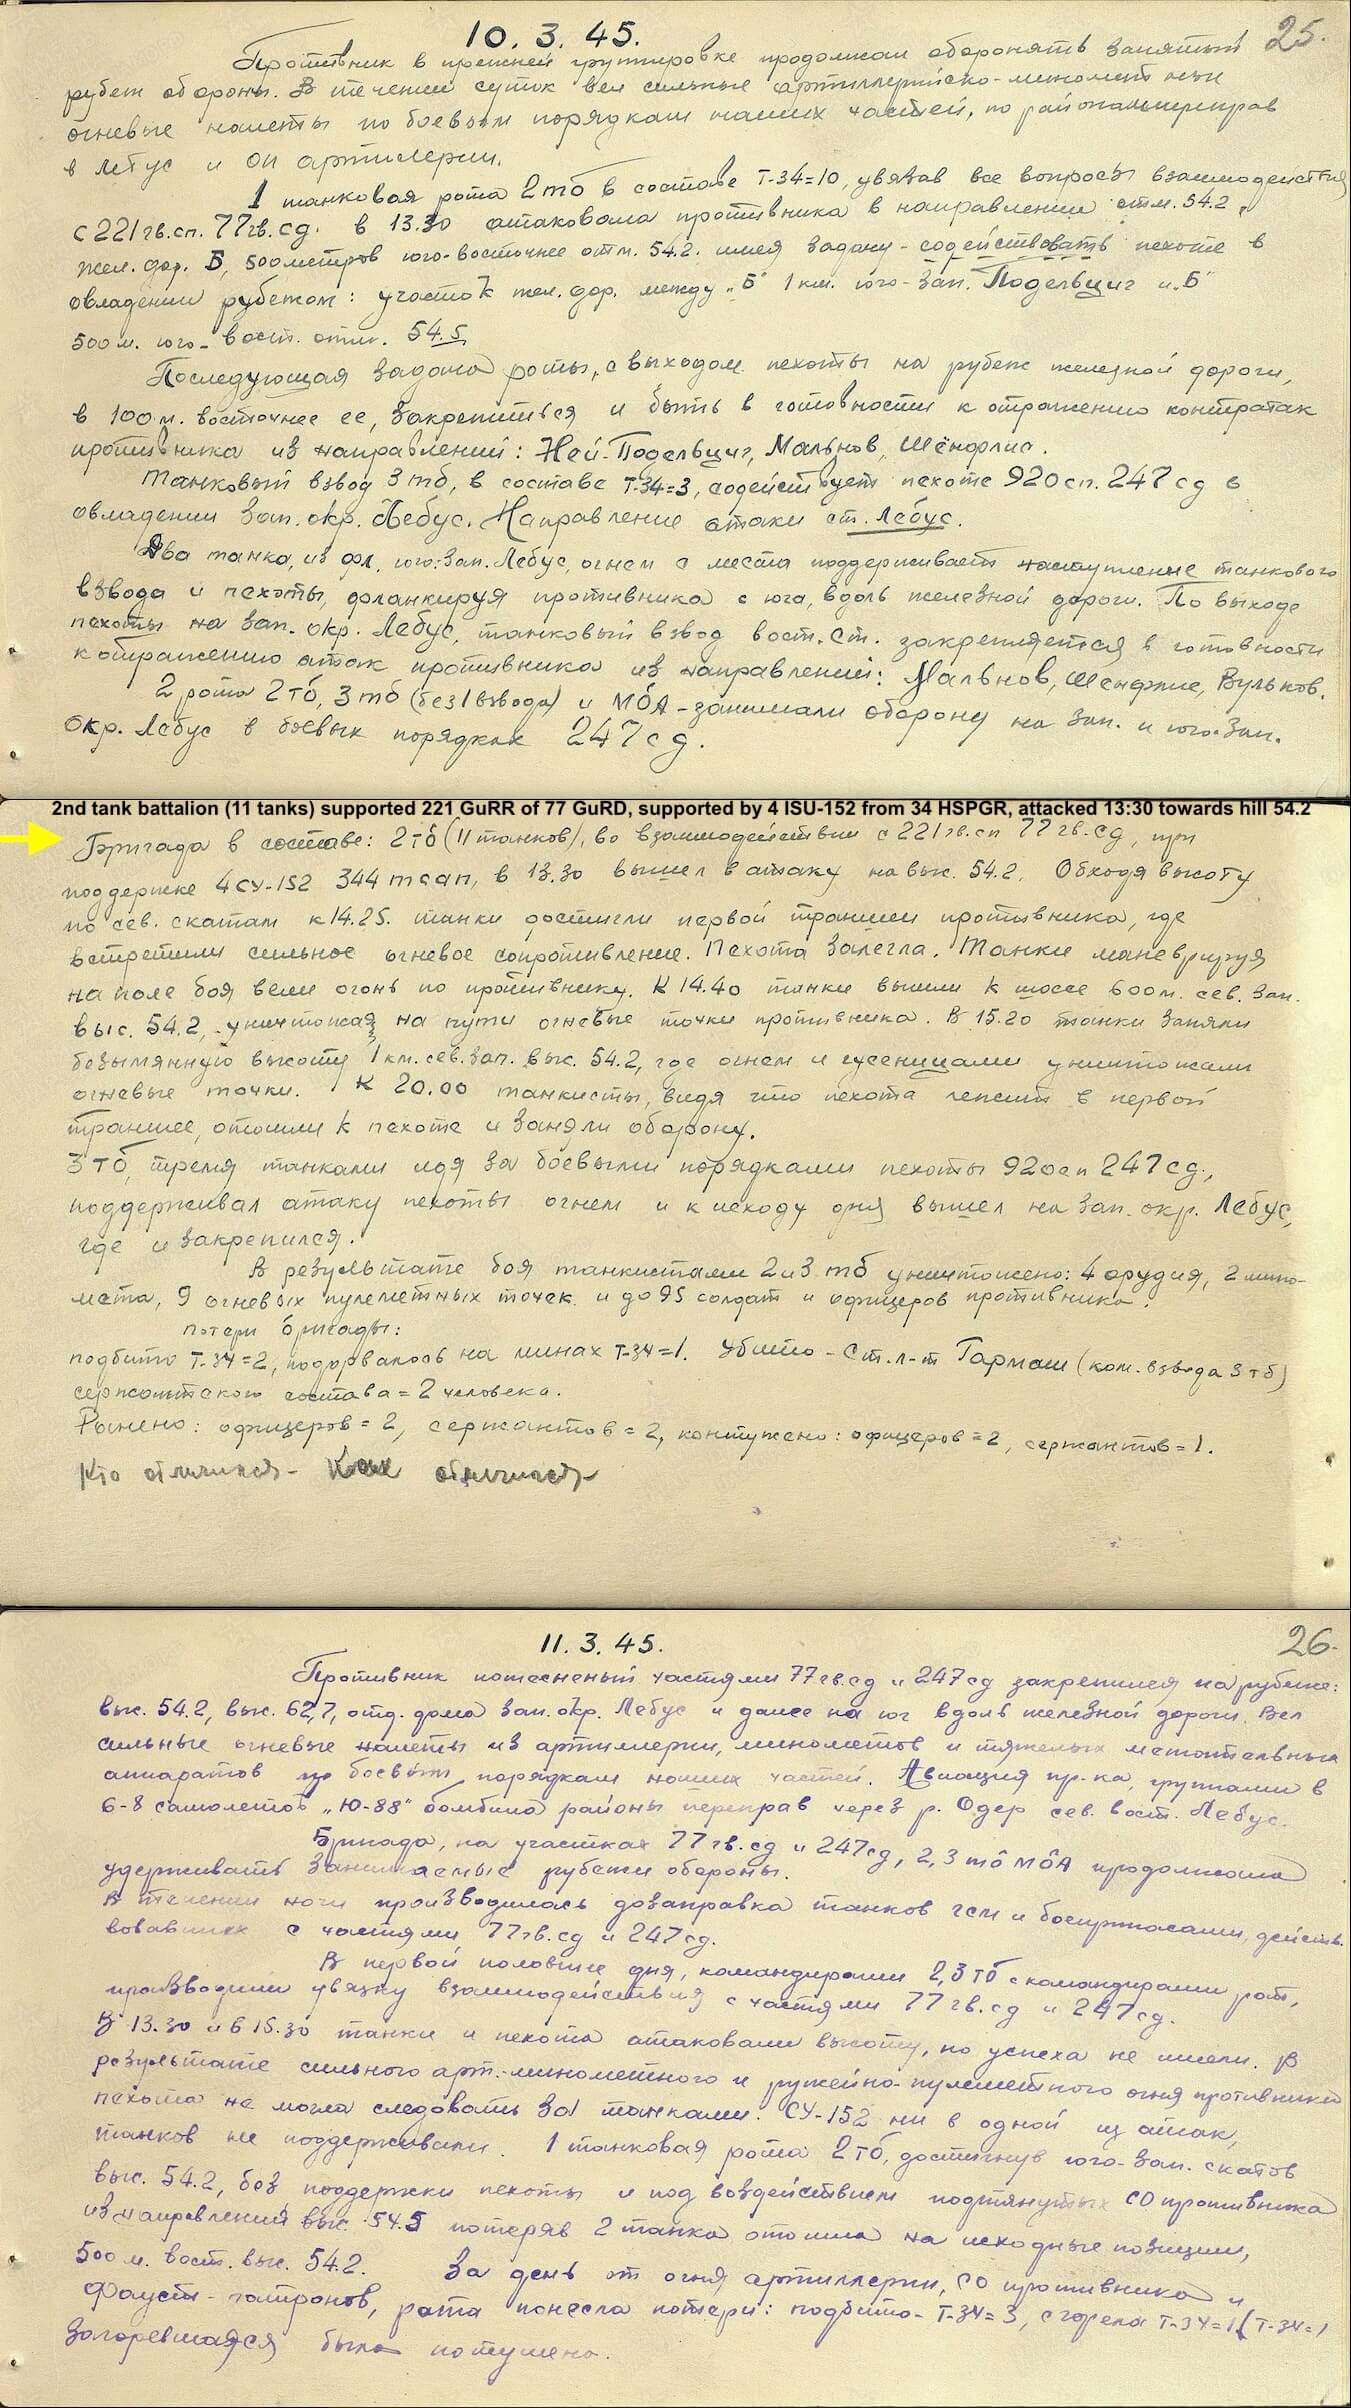 10. 3. 45.
25.
Противник в прежней группировке продолжал оборонять занятый
рубеж обороны. В течении суток вел сильные артиллерийско-минометные
огневые налеты по боевым порядкам наших частей, по районам переправ
в Лебус и ОП артиллерии.
1 танковая рота 2тб в составе Т-34=10, увязав все вопросы взаимодействия
с 221 гв.сп. 77 гв.сд. в 13.30 атаковала противника в направлении отм. 54.2,
жел. дор. Б, 500 метров юго-восточнее отм. 54.2. имея задачу - содействовать пехоте в
овладении рубежом: участок жел. дор. между „Б" 1 км. юго-зап. Подельциг и „Б"
500 м. юго-вост. отм. 54.5
Последующая задача роты, с выходом пехоты на рубеж железной дороги,
в 100 м. восточнее ее, закрепиться и быть в готовности к отражению контратак
противника из направлений: Ней-Подельциг, Мальнов, Шёнфлис.
Танковый взвод 3тб, в составе Т-34=3, содействует пехоте 920 сп. 247 сд в
овладении зап. окр. Лебус. Направление атаки ст. Лебус.
Два танка, из юго-зап. Лебус, огнем с места поддерживает наступление танкового
взвода и пехоты, фланкируя противника с юга, вдоль железной дороги. По выходе
пехоты на зап. окр. Лебус, танковый взвод вост. ст. закрепляется в готовности
к отражению атак противника из направлений: Мальнов, Шенфлис, Вульков.
2 рота 2тб, 3тб (без 1 взвода) и МбА - занимали оборону на зап. и юго-зап.
окр. Лебус в боевых порядках 247 сд.
2nd tank battalion (11 tanks) supported 221 GuRR of 77 GuRD, supported by 4 ISU-152 from 34 HSPGR, attacked 13:30 towards hill 54.2
Бригада в составе: 2тб (11 танков), во взаимодействии с 221 гв.сп 77 гв.сд, при
поддержке 4 СУ-152 344 тсап, в 13.30 вышел в атаку на выс. 54.2. Обходя высоту
по сев. скатам к 14.25. танки достигли первой траншеи противника, где
встретили сильное огневое сопротивление. Пехота залегла. Танки маневрируя
на поле боя вели огонь по противнику. К 14.40 танки вышли к шоссе 600 м. сев. зап.
выс. 54.2, уничтожая на пути огневые точки противника. В 15.20 танки заняли
безымянную высоту 1 км. сев. зап. выс. 54.2, где огнем и гусеницами уничтожали
огневые точки. К 20.00 танкисты, видя что пехота лежит в первой
траншее, отошли к пехоте и заняли оборону.
3тб, тремя танками идя за боевыми порядками пехоты 920 сп 247 сд,
поддерживал атаку пехоты огнем и к исходу дня вышел на зап. окр. Лебус,
где и закрепился.
В результате боя танкистами 2 и 3 тб уничтожено: 4 орудия, 2 мино-
мета, 9 огневых пулеметных точек и до 95 солдат и офицеров противника.
Потери бригады:
подбито Т-34=2, подорвалось на минах Т-34=1. Убито - ст. л-т Гармаш (ком. взвода 3тб)
сержантского состава = 2 человека.
Ранено: офицеров = 2, сержантов = 2, контужено: офицеров = 2, сержантов = 1.
Кто отличился - Как отличился
11. 3. 45.
26.
Противник потесненый частями 77 гв.сд и 247 сд закрепился на рубеже:
выс. 54.2, выс. 62,7, отд. дома зап. окр. Лебус и далее на юг вдоль железной дороги. Вел
сильные огневые налеты из артиллерии, минометов и тяжелых метательных
аппаратов по боевым порядкам наших частей. Авиация пр-ка, группами в
6-8 самолетов „Ю-88" бомбила районы переправ через р. Одер сев. вост. Лебус.
Бригада, на участках 77 гв.сд и 247 сд, 2,3 тб МбА продолжала
удерживать занимаемые рубежи обороны.
В течении ночи производилась дозаправка танков гсм и боеприпасами, действо-
вовавших с частями 77 гв.сд и 247 сд.
В первой половине дня, командирами 2,3 тб с командирами рот,
производили увязку взаимодействия с частями 77 гв.сд и 247 сд.
В 13.30 и в 15.30 танки и пехота атаковали высоту, но успеха не имели. В
результате сильного арт.-минометного и ружейно-пулеметного огня противника
пехота не могла следовать за танками. СУ-152 ни в одной из атак,
танков не поддерживали. 1 танковая рота 2тб, достигнув юго-зап. скатов
выс. 54.2, без поддержки пехоты и под воздействием подтянутых СО противника
из направлений выс. 54.5 потеряв 2 танка отошла на исходные позиции,
500 м. вост. выс. 54.2. За день от огня артиллерии, СО противника и
Фауст-патронов, рота понесла потери: подбито - Т-34=3, сгорела Т-34=1 (Т-34=1
загоревшаяся была потушена.